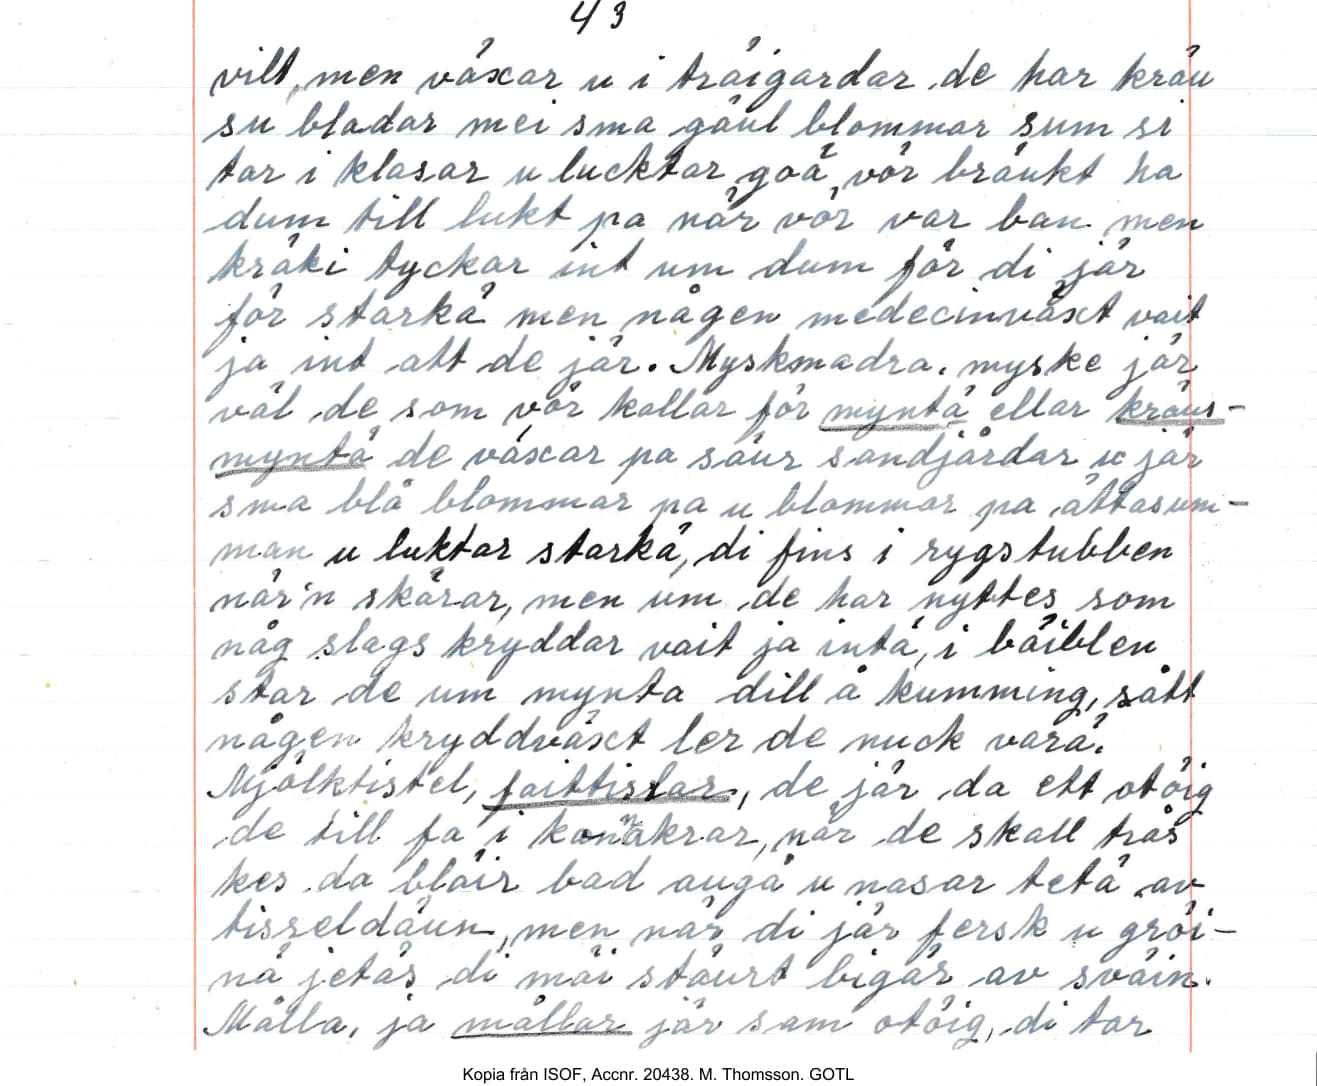 43
vilt, men växar u i träigardar de har kräu
su bladar mei sma gäul blommar sum si
tar i klasar u lucktar goä, vör bräukt ha
dum till lukt pa när vör var ban men
kräki tyckar int um dum för di jär
för starkä men någen medecinväxt vait
ja int att de jär. Myskmadra, myske jär
väl de som vör kallar för myntä ellar kräus-
myntä de växar pa säur sandjårdar u jär
sma blå blommar pa u blommar pa ättasum-
man u luktar starkä, di fins i rygstubben
när'n skärar, men um de har nyttes som
någ slags kryddar vait ja intä, i bäiblen
star de um mynta dill å kumming, sått
någen kryddväxt ler de nuck varä.
Mjölktistel, faittisslar, de jär da ett otöig
de till fa i konnäkrar, när de skall trås
kes da bläir bad augä u nasar tetä av
tisseldäun, men när di jär fersk u gröi-
nä jetäs di mäi stäurt bigär av sväin.
Målla, ja mållar jär sam otöig, di tar
Kopia från ISOF, Accnr. 20438. M. Thomsson. GOTL